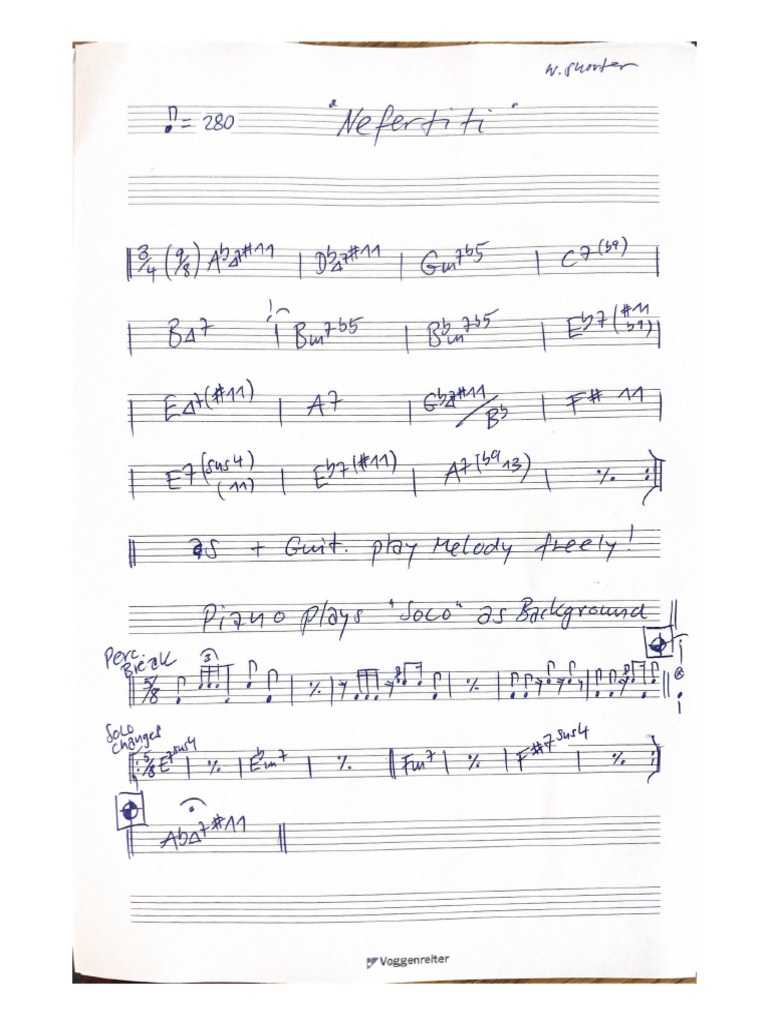 W. Shorter
♪ = 280 "Nefertiti"
3/4 (9/8) Ab△7#11 | Db△7#11 | Gm7b5 | C7(b9) |
| B△7 | Bm7b5 | Bbm7b5 | Eb7(#11 b9) |
| E△7(#11) | A7 | Gb△7#11/Bb | F# 11 |
| E7(sus4) (11) | Eb7(#11) | A7(b9 13) | ٪ :||
+ Guit. play Melody freely!
Piano plays "Solo" as Background
Perc. Break
5/8 3
Solo changes
5/8 E7sus4 | ٪ | Ebm7 | ٪ || Fm7 | ٪ | F#7sus4 | ٪ :||
Ab△7#11 ||
Voggenreiter